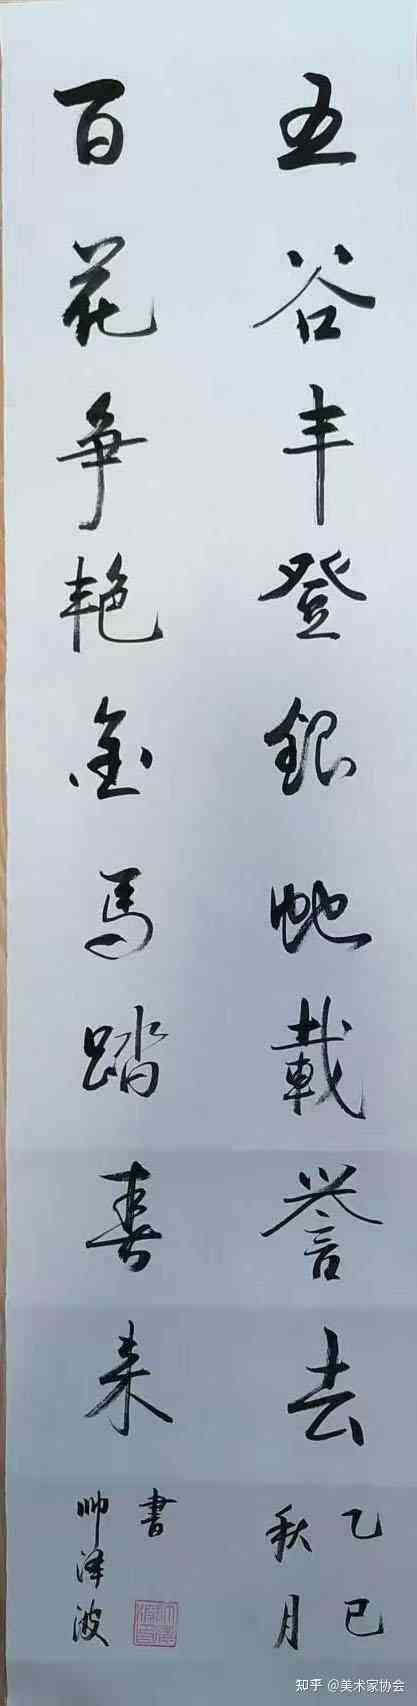 五谷丰登银蛇载誉去
百花争艳金马踏春来
乙巳
秋月
書
帅泽波
知乎 @美术家协会